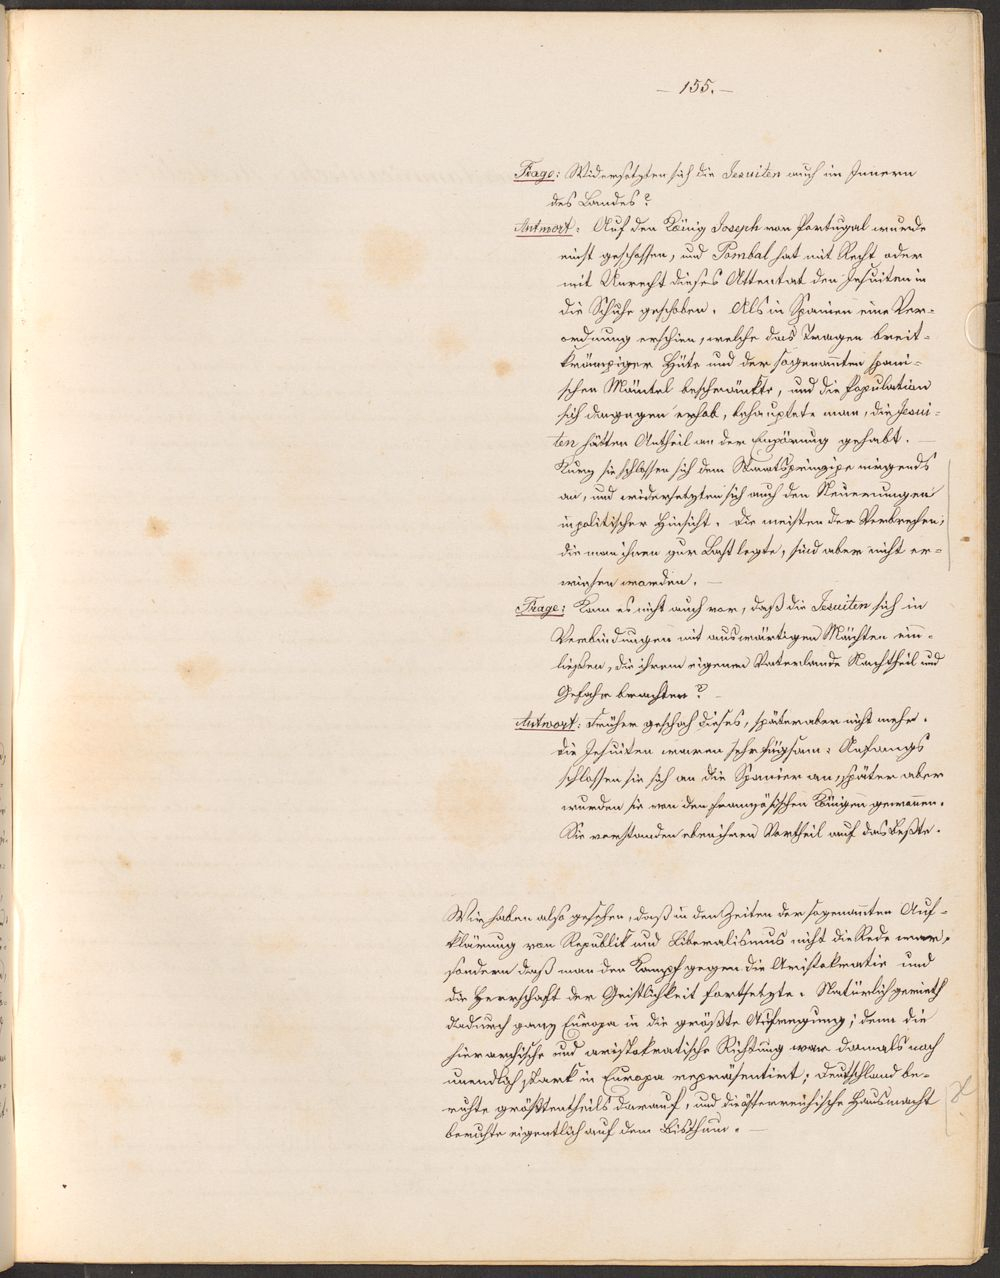 – 155. –
Frage: Widersetzten sich die Jesuiten auch im Innern
des Landes?
Antwort: Auf den König Joseph von Portugal wurde
einst geschossen, und Pombal hat mit Recht oder
mit Unrecht dieses Attentat den Jesuiten in
die Schuhe geschoben. Als in Spanien eine Ver-
ordnung erschien, welche das Tragen breit-
krämpiger Hüte und der sogenannten spani-
schen Mäntel beschränkte, und die Population
sich dagegen erhob, behauptete man, die Jesui-
ten hätten Antheil an der Empörung gehabt. –
Kurz sie schlossen sich dem Staatsprinzipe nirgends
an, und widersetzten sich auch den Neuerungen
in politischer Hinsicht. Die meisten der Verbrechen,
die man ihnen zur Last legte, sind aber nicht er-
wiesen worden. –
Frage: Kam es nicht auch vor, daß die Jesuiten sich in
Verbindungen mit auswärtigen Mächten ein-
ließen, die ihrem eigenen Vaterlande Nachtheil und
Gefahr brachten? –
Antwort: Früher geschah dieses, später aber nicht mehr.
Die Jesuiten waren sehr fügsam: Anfangs
schlossen sie sich an die Spanier an, später aber
wurden sie von den französischen Königen gewonnen.
Sie verstanden eben ihren Vortheil auf das Beßte.
Wir haben also gesehen, daß in den Zeiten der sogenannten Auf-
klärung von Republik und Liberalismus nicht die Rede war,
sondern daß man den Kampf gegen die Aristokratie und
die Herrschaft der Geistlichkeit fortsetzte. Natürlich gerieth
dadurch ganz Europa in die größte Aufregung; denn die
hierarchische und aristokratische Richtung war damals noch
unendlich stark in Europa repräsentirt; Deutschland be-
ruhte größtentheils darauf, und die österreichische Hausmacht
beruhte eigentlich auf dem Bisthum. –